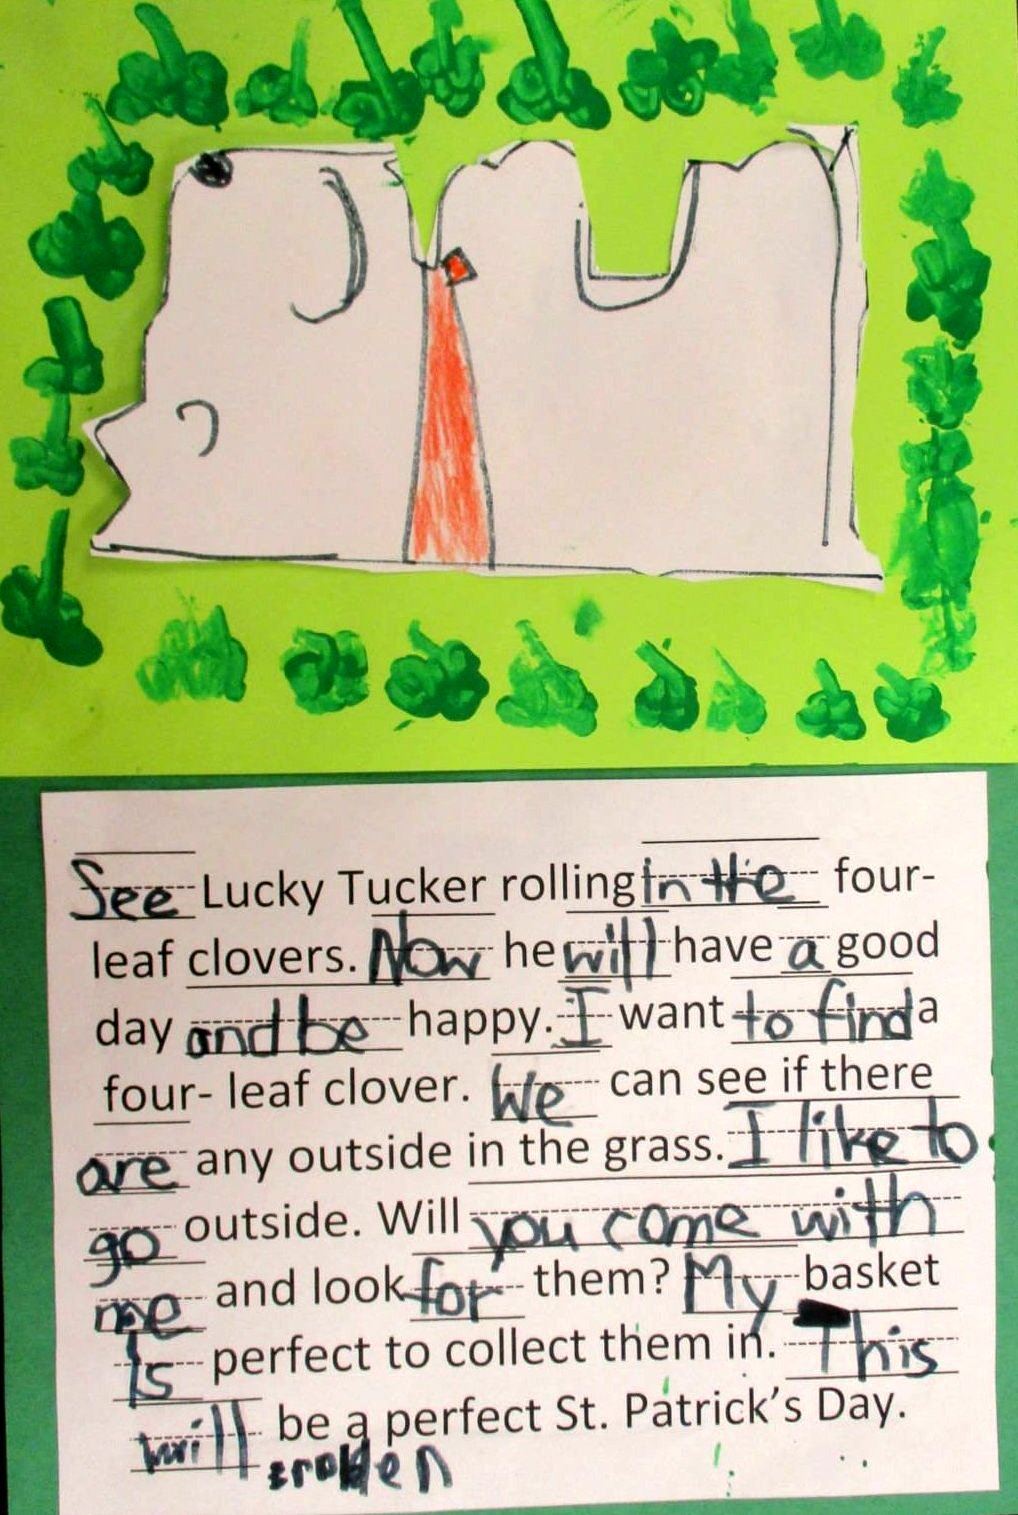 See Lucky Tucker rolling in the four-
leaf clovers. Now he will have a good
day and be happy. I want to find a
four- leaf clover. We can see if there
are any outside in the grass. I like to
go outside. Will you come with
me and look for them? My basket
Is perfect to collect them in. This
will be a perfect St. Patrick's Day.